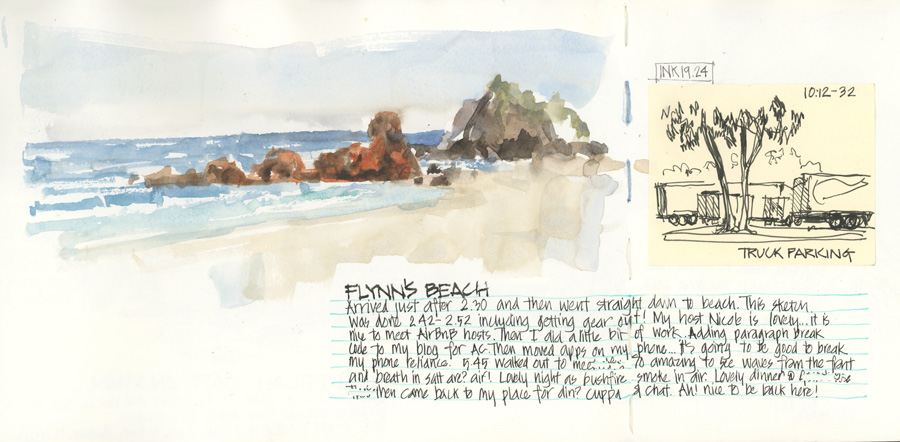 INK19.24
10:12-32
TRUCK PARKING
FLYNN'S BEACH
Arrived just after 2.30 and then went straight down to beach. This sketch
was done 2.42-2.52 including getting gear out! My host Nicole is lovely...it is
nice to meet AirBnB hosts. Then I did a little bit of work. Adding paragraph break
code to my blog for Ac. Then moved apps on my phone...it's going to be good to break
my phone reliance. 5.45 walked out to so amazing to see waves from the front
and breath in salt are? air! Lovely night as bushfire smoke in air. Lovely dinner @
then came back to my place for din? cuppa & chat. Ah! nice to be back here!